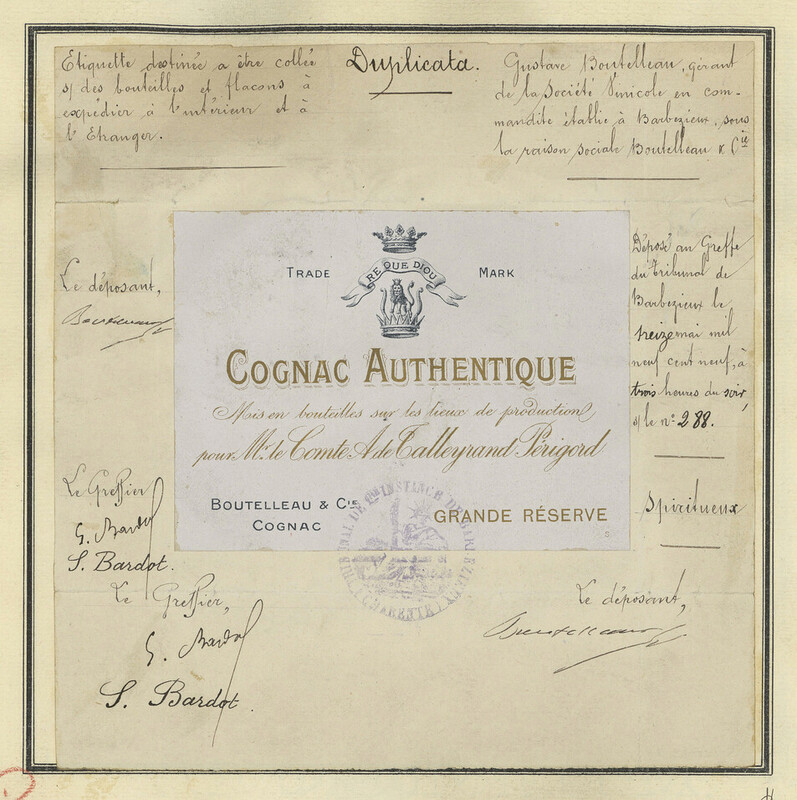 Etiquette destinée a être collée
s/ des bouteilles et flacons à
expédier à l'intérieur et à
l'Etranger.
Duplicata.
Gustave Boutelleau, gérant
de la Société Vinicole en com-
mandite établie à Barbezieux, sous
la raison sociale Boutelleau & Cie
Le déposant,
Boutelleau
TRADE MARK
RE QUE DIOU
COGNAC AUTHENTIQUE
Mis en bouteilles sur les lieux de production
pour Mr. le Comte A de Talleyrand Périgord
BOUTELLEAU & Cie
COGNAC
GRANDE RÉSERVE
Déposé au Greffe
du Tribunal de
Barbezieux le
treize mai mil
neuf cent neuf, à
trois heures du soir,
s/ le no 288.
Spiritueux
Le Greffier
S. Bardot
S. Bardot.
TRIBUNAL DE 1re INSTANCE DE BARBEZIEUX
(CHARENTE)
Le Greffier,
S. Bardot
S. Bardot.
Le déposant,
Boutelleau